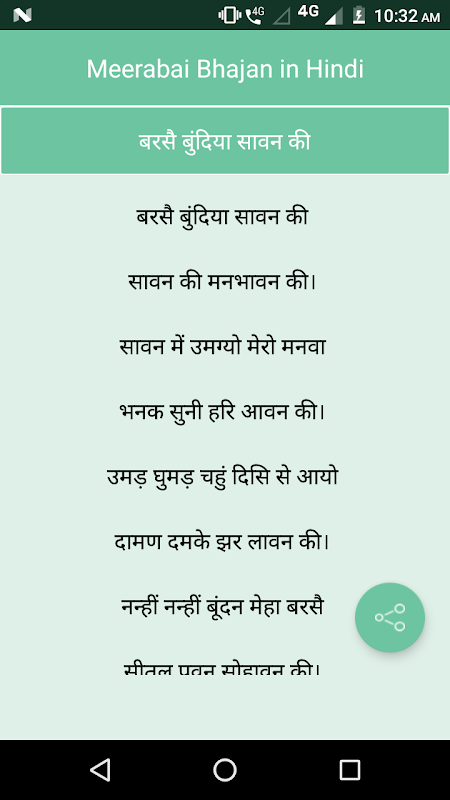 4G 4G 10:32 AM
Meerabai Bhajan in Hindi
बरसै बुंदिया सावन की
बरसै बुंदिया सावन की
सावन की मनभावन की।
सावन में उमग्यो मेरो मनवा
भनक सुनी हरि आवन की।
उमड़ घुमड़ चहुं दिसि से आयो
दामण दमके झर लावन की।
नन्हीं नन्हीं बूंदन मेहा बरसै
सीतल पवन सोहावन की।